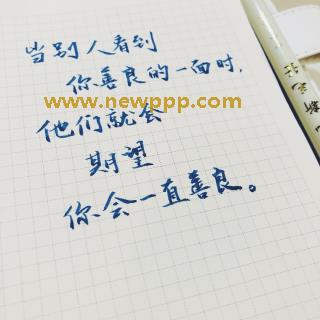 当别人看到
你善良的一面时,
www.newppp.com
他们就会
期望
你会一直善良。